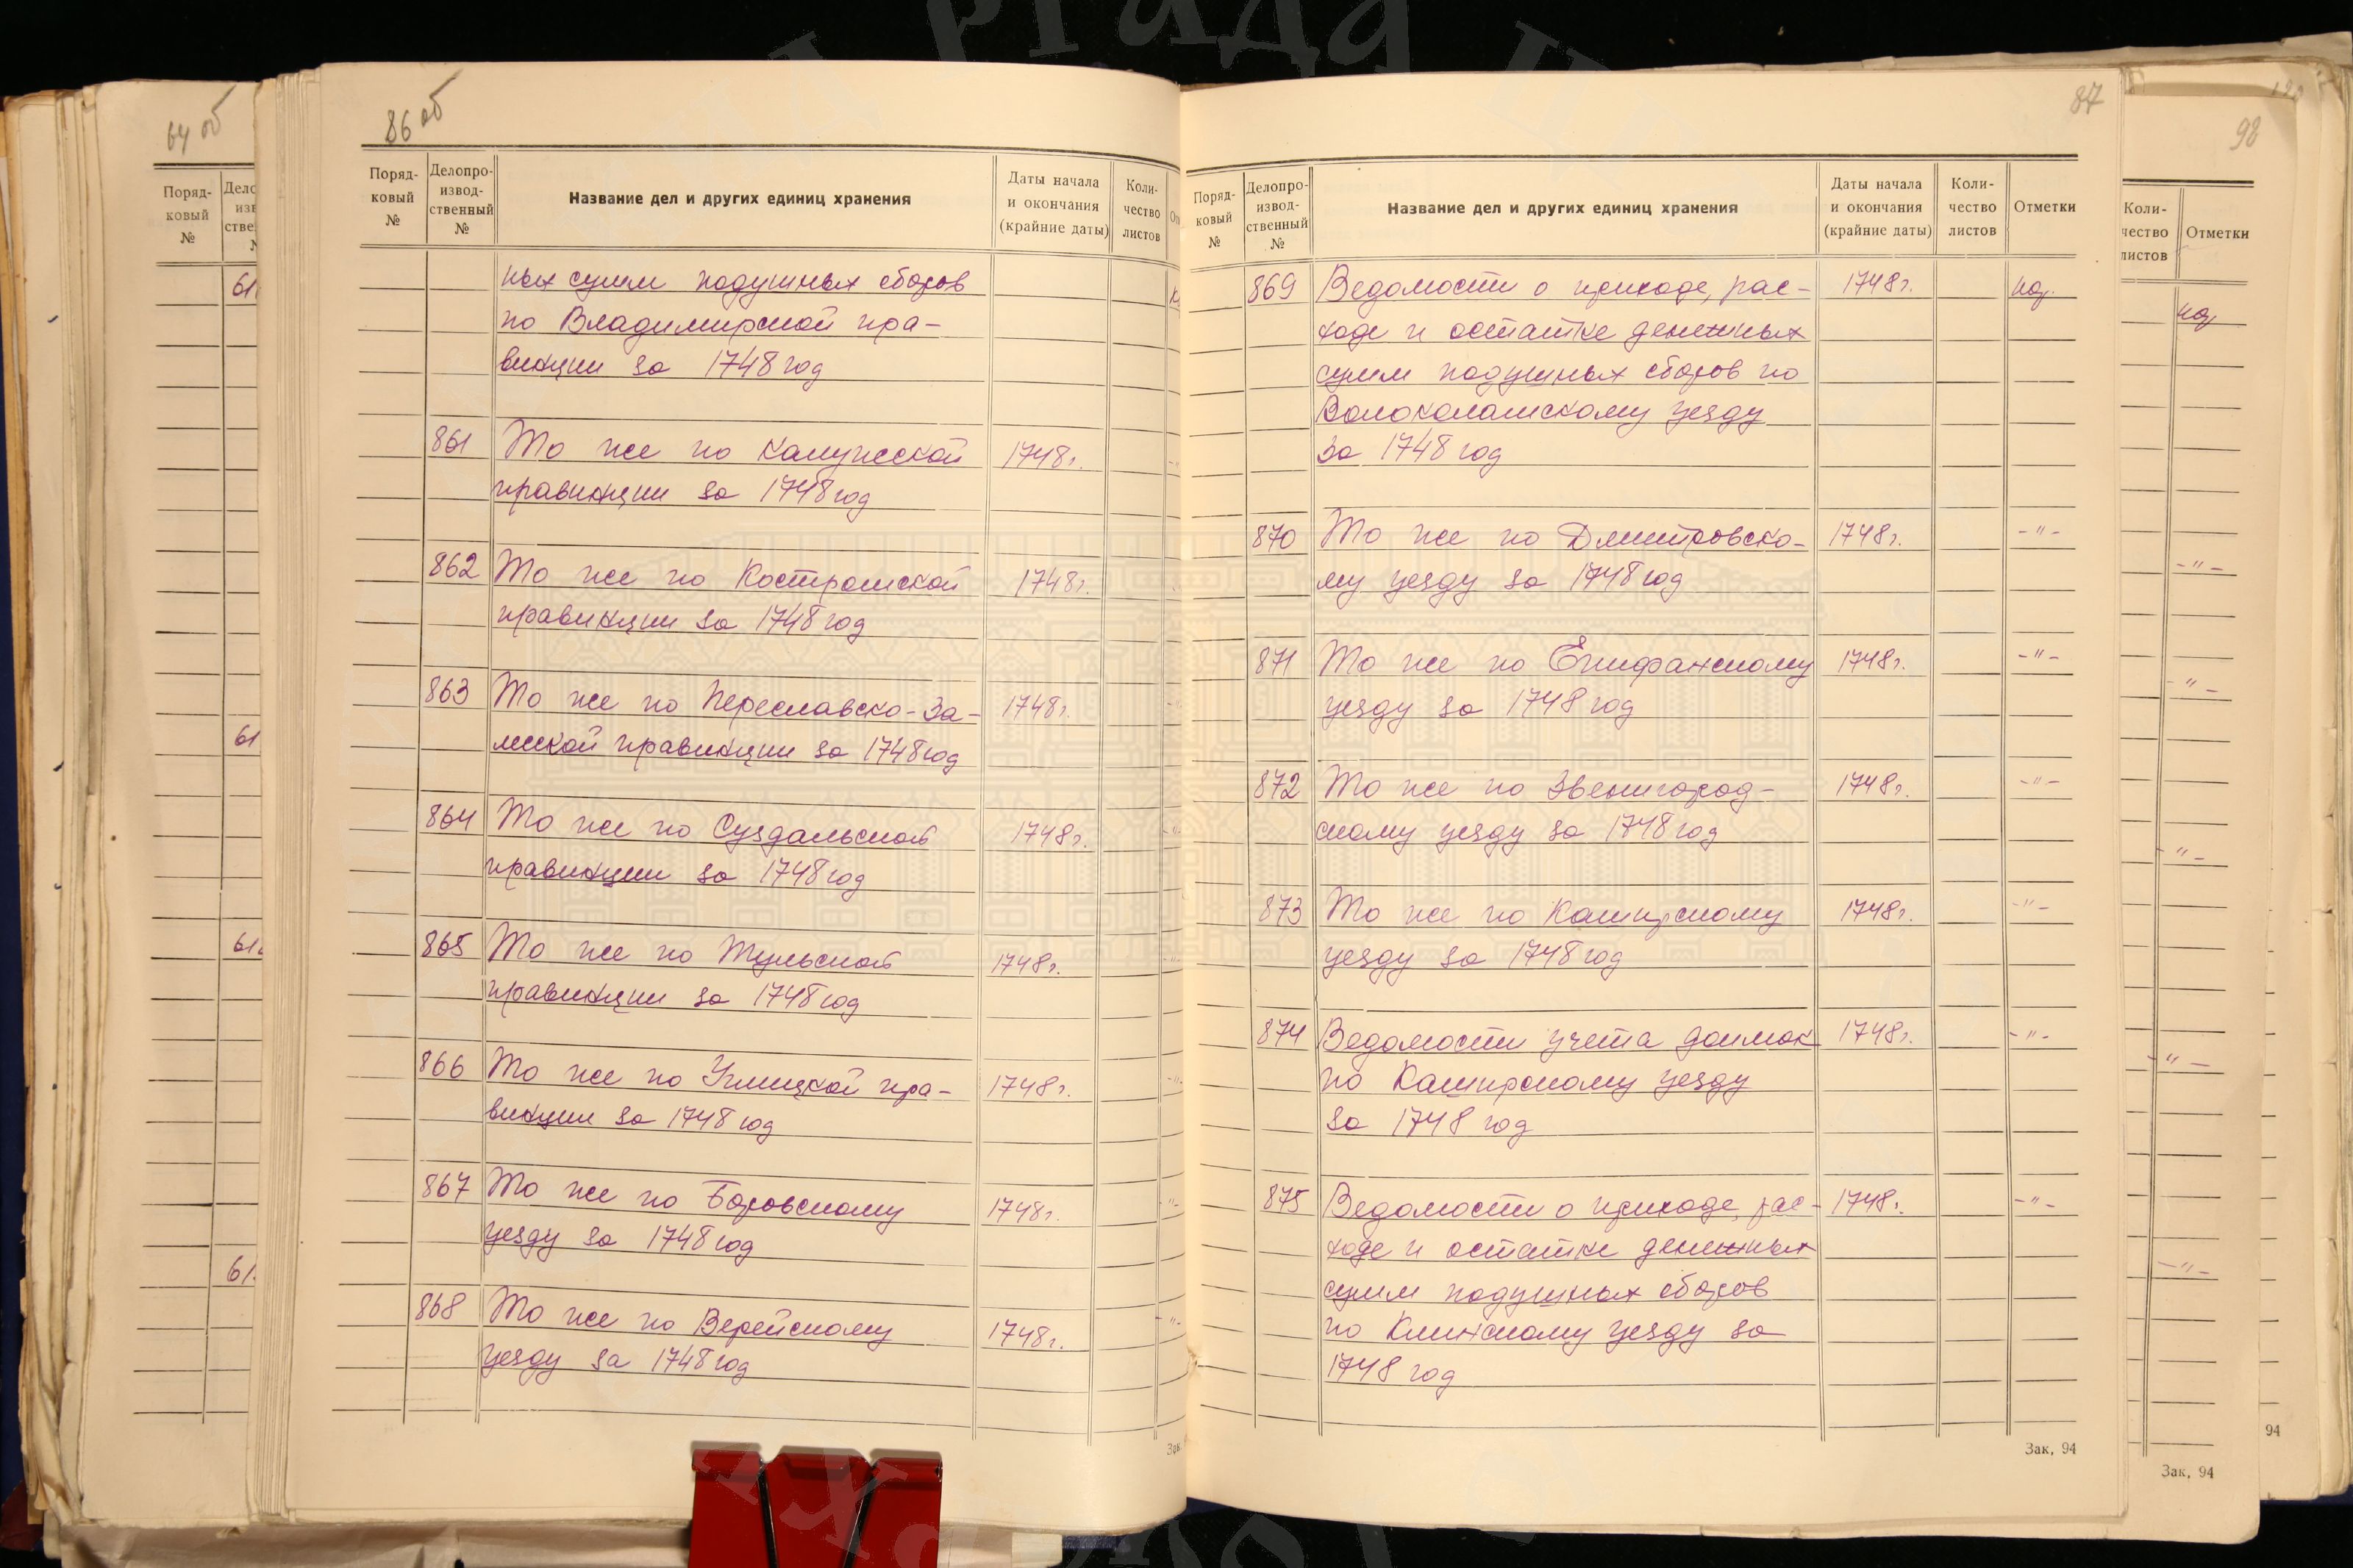 64 об
Поряд-
ковый
№
61
61
61
61
86 об
Поряд-
ковый
№
Делопро-
извод-
ственный
№
Название дел и других единиц хранения
Даты начала
и окончания
(крайние даты)
Коли-
чество
листов
ных сумм подушных сборов
по Владимирской про-
винции за 1748 год
861 То же по Калужской 1748 г.
провинции за 1748 год
862 То же по Костромской 1748 г.
провинции за 1748 год
863 То же по Переславско-За- 1748 г.
лесской провинции за 1748 год
864 То же по Суздальской 1748 г.
провинции за 1748 год
865 То же по Тульской 1748 г.
провинции за 1748 год
866 То же по Углицкой про- 1748 г.
винции за 1748 год
867 То же по Боровскому 1748 г.
уезду за 1748 год
868 То же по Верейскому 1748 г.
уезду за 1748 год
Зак
87
Поряд-
ковый
№
Делопро-
извод-
ственный
№
Название дел и других единиц хранения
Даты начала
и окончания
(крайние даты)
Коли-
чество
листов
Отметки
869 Ведомости о приходе, рас- 1748 г.
ходе и остатке денежных
сумм подушных сборов по
Волоколамскому уезду
за 1748 год
870 То же по Дмитровско- 1748 г. -"-
му уезду за 1748 год
871 То же по Епифанскому 1748 г. -"-
уезду за 1748 год
872 То же по Звенигород- 1748 г. -"-
скому уезду за 1748 год
873 То же по Каширскому 1748 г. -"-
уезду за 1748 год
874 Ведомости учета доимок 1748 г. -"-
по Каширскому уезду
за 1748 год
875 Ведомости о приходе, рас- 1748 г. -"-
ходе и остатке денежных
сумм подушных сборов
по Клинскому уезду за
1748 год
Зак. 94
98
Коли-
чество
листов
Отметки
-"-
-"-
-"-
-"-
-"-
Зак. 94
94